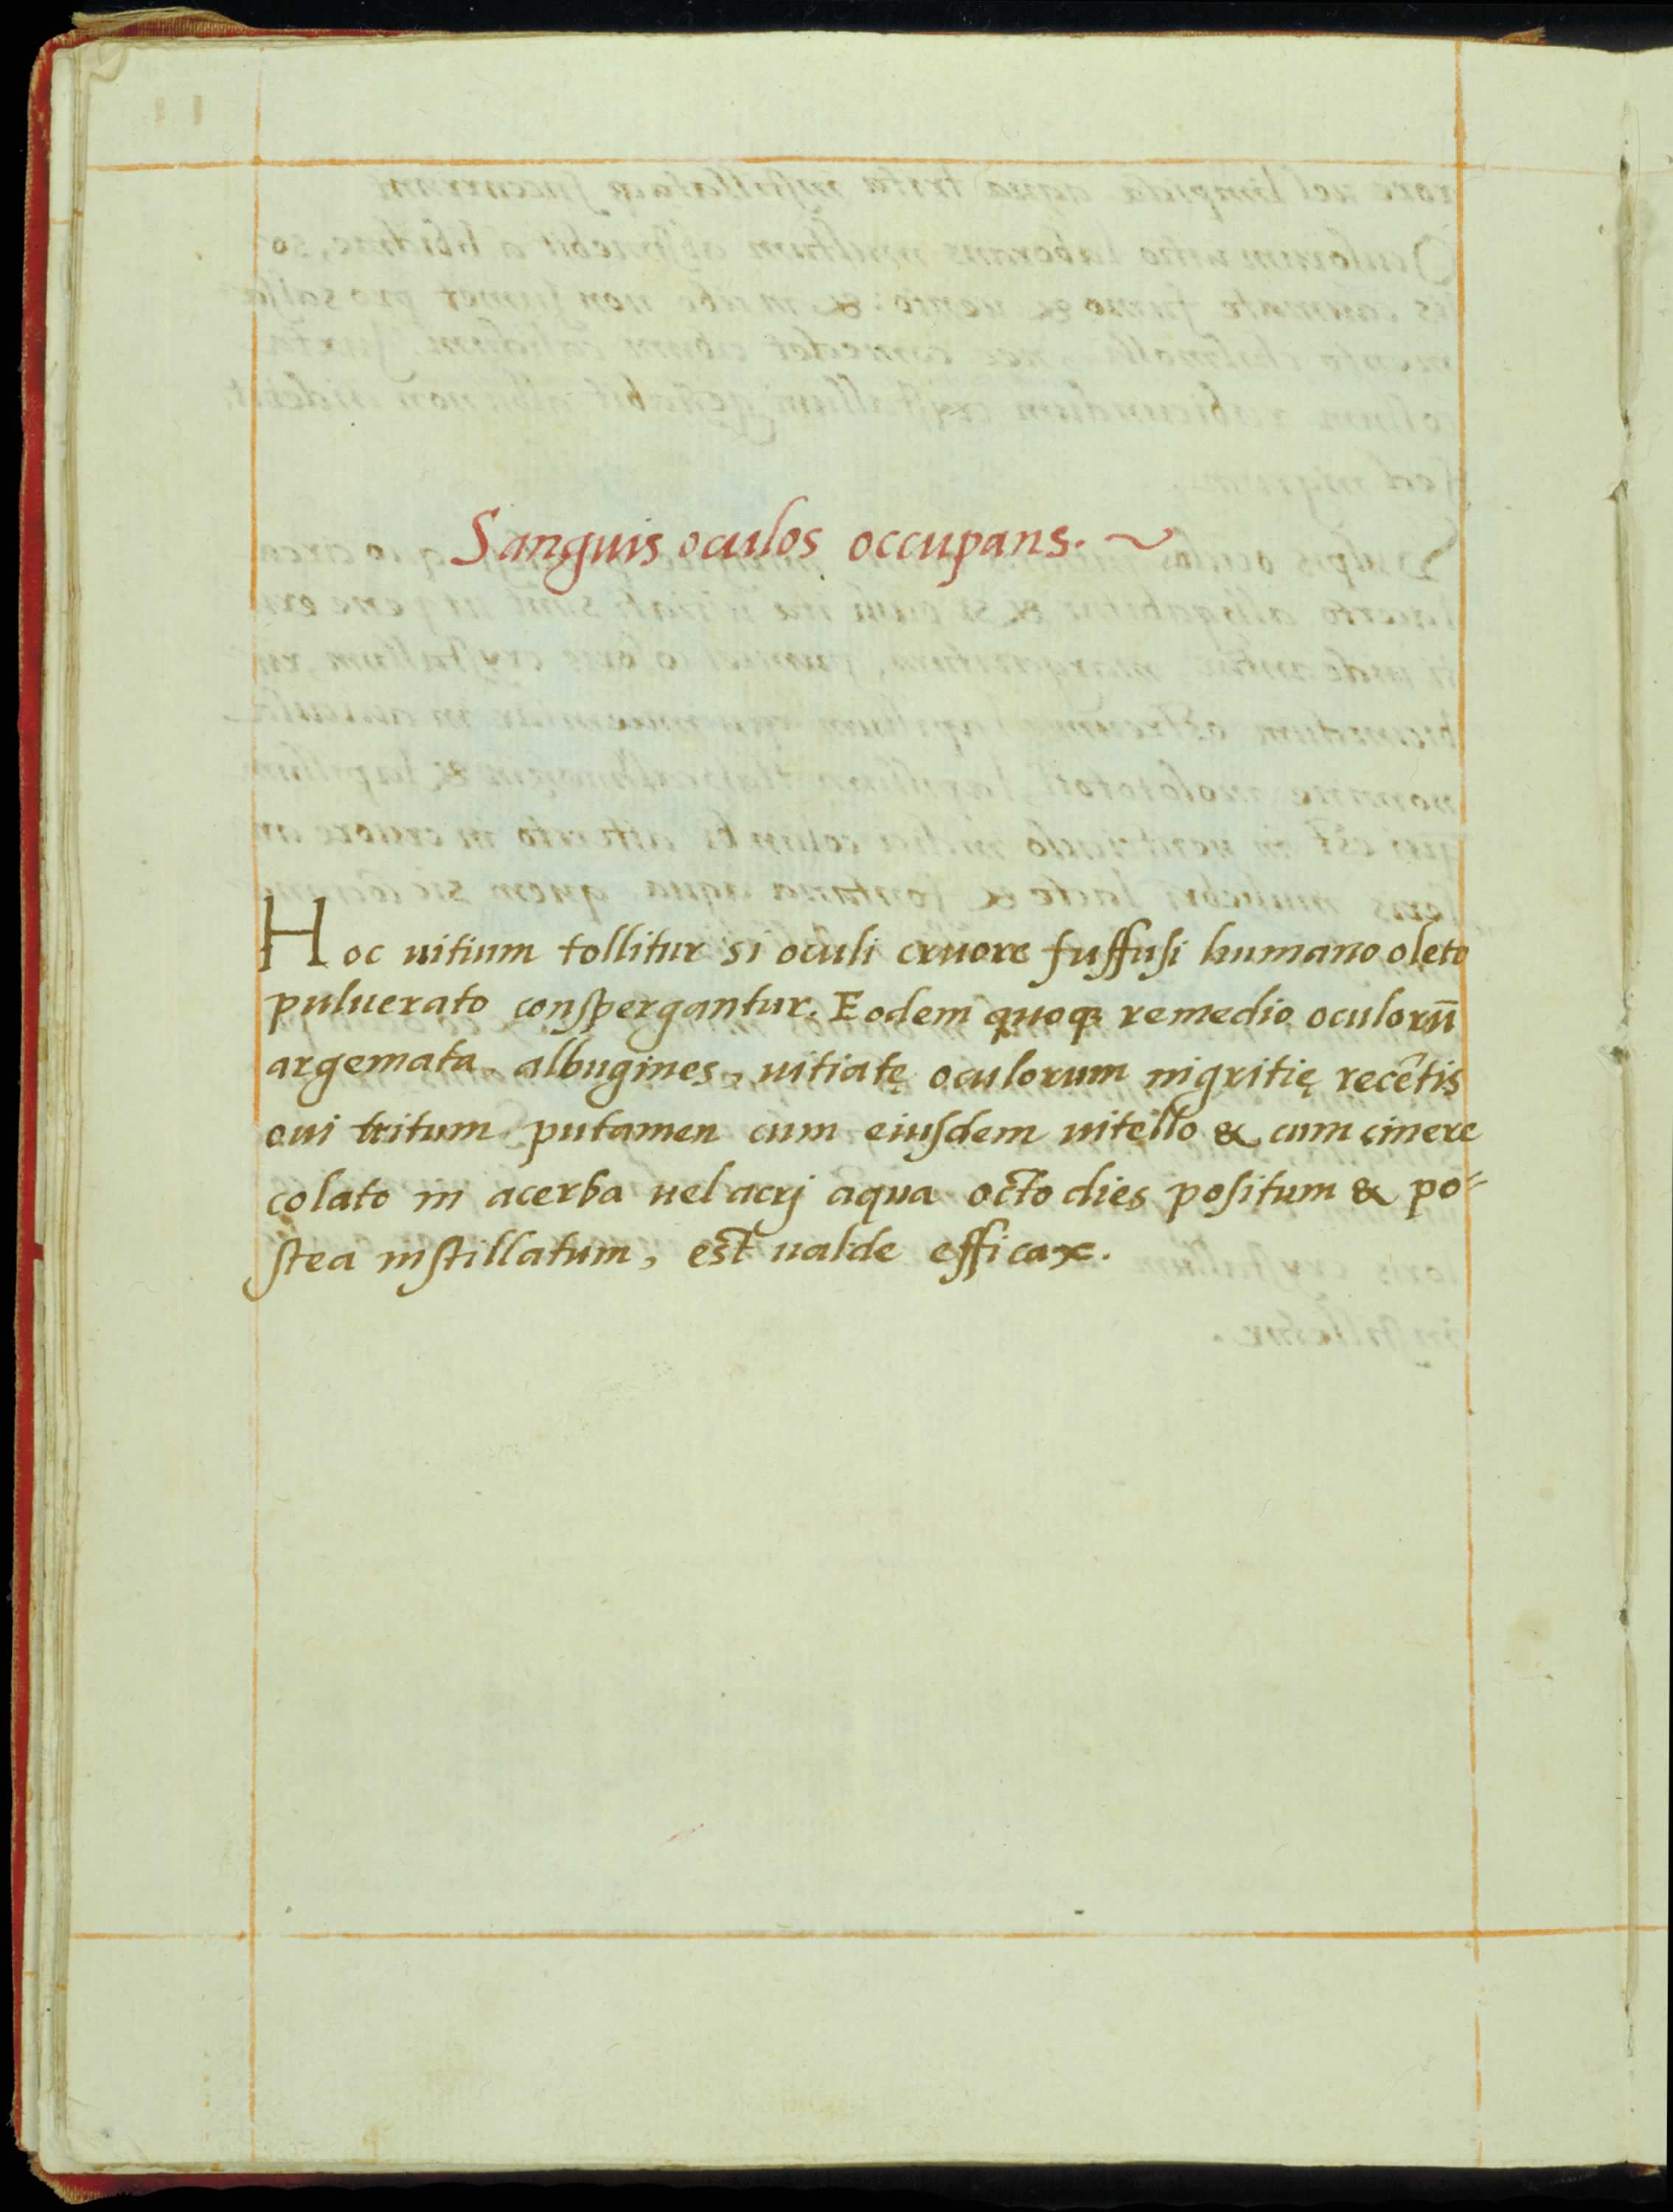 Sanguis oculos occupans. ~
Hoc uitium tollitur si oculi cruore ſuffuſi humano oleto
puluerato conſpergantur. Eodem quoqꝫ remedio oculorū
argemata, albugines, uitiatę oculorum nigritię recētis
oui tritum putamen cum eiuſdem uitello & cum cinere
colato in acerba uel acrj aqua octo dies poſitum & po-
ſtea inſtillatum, est ualde efficax.